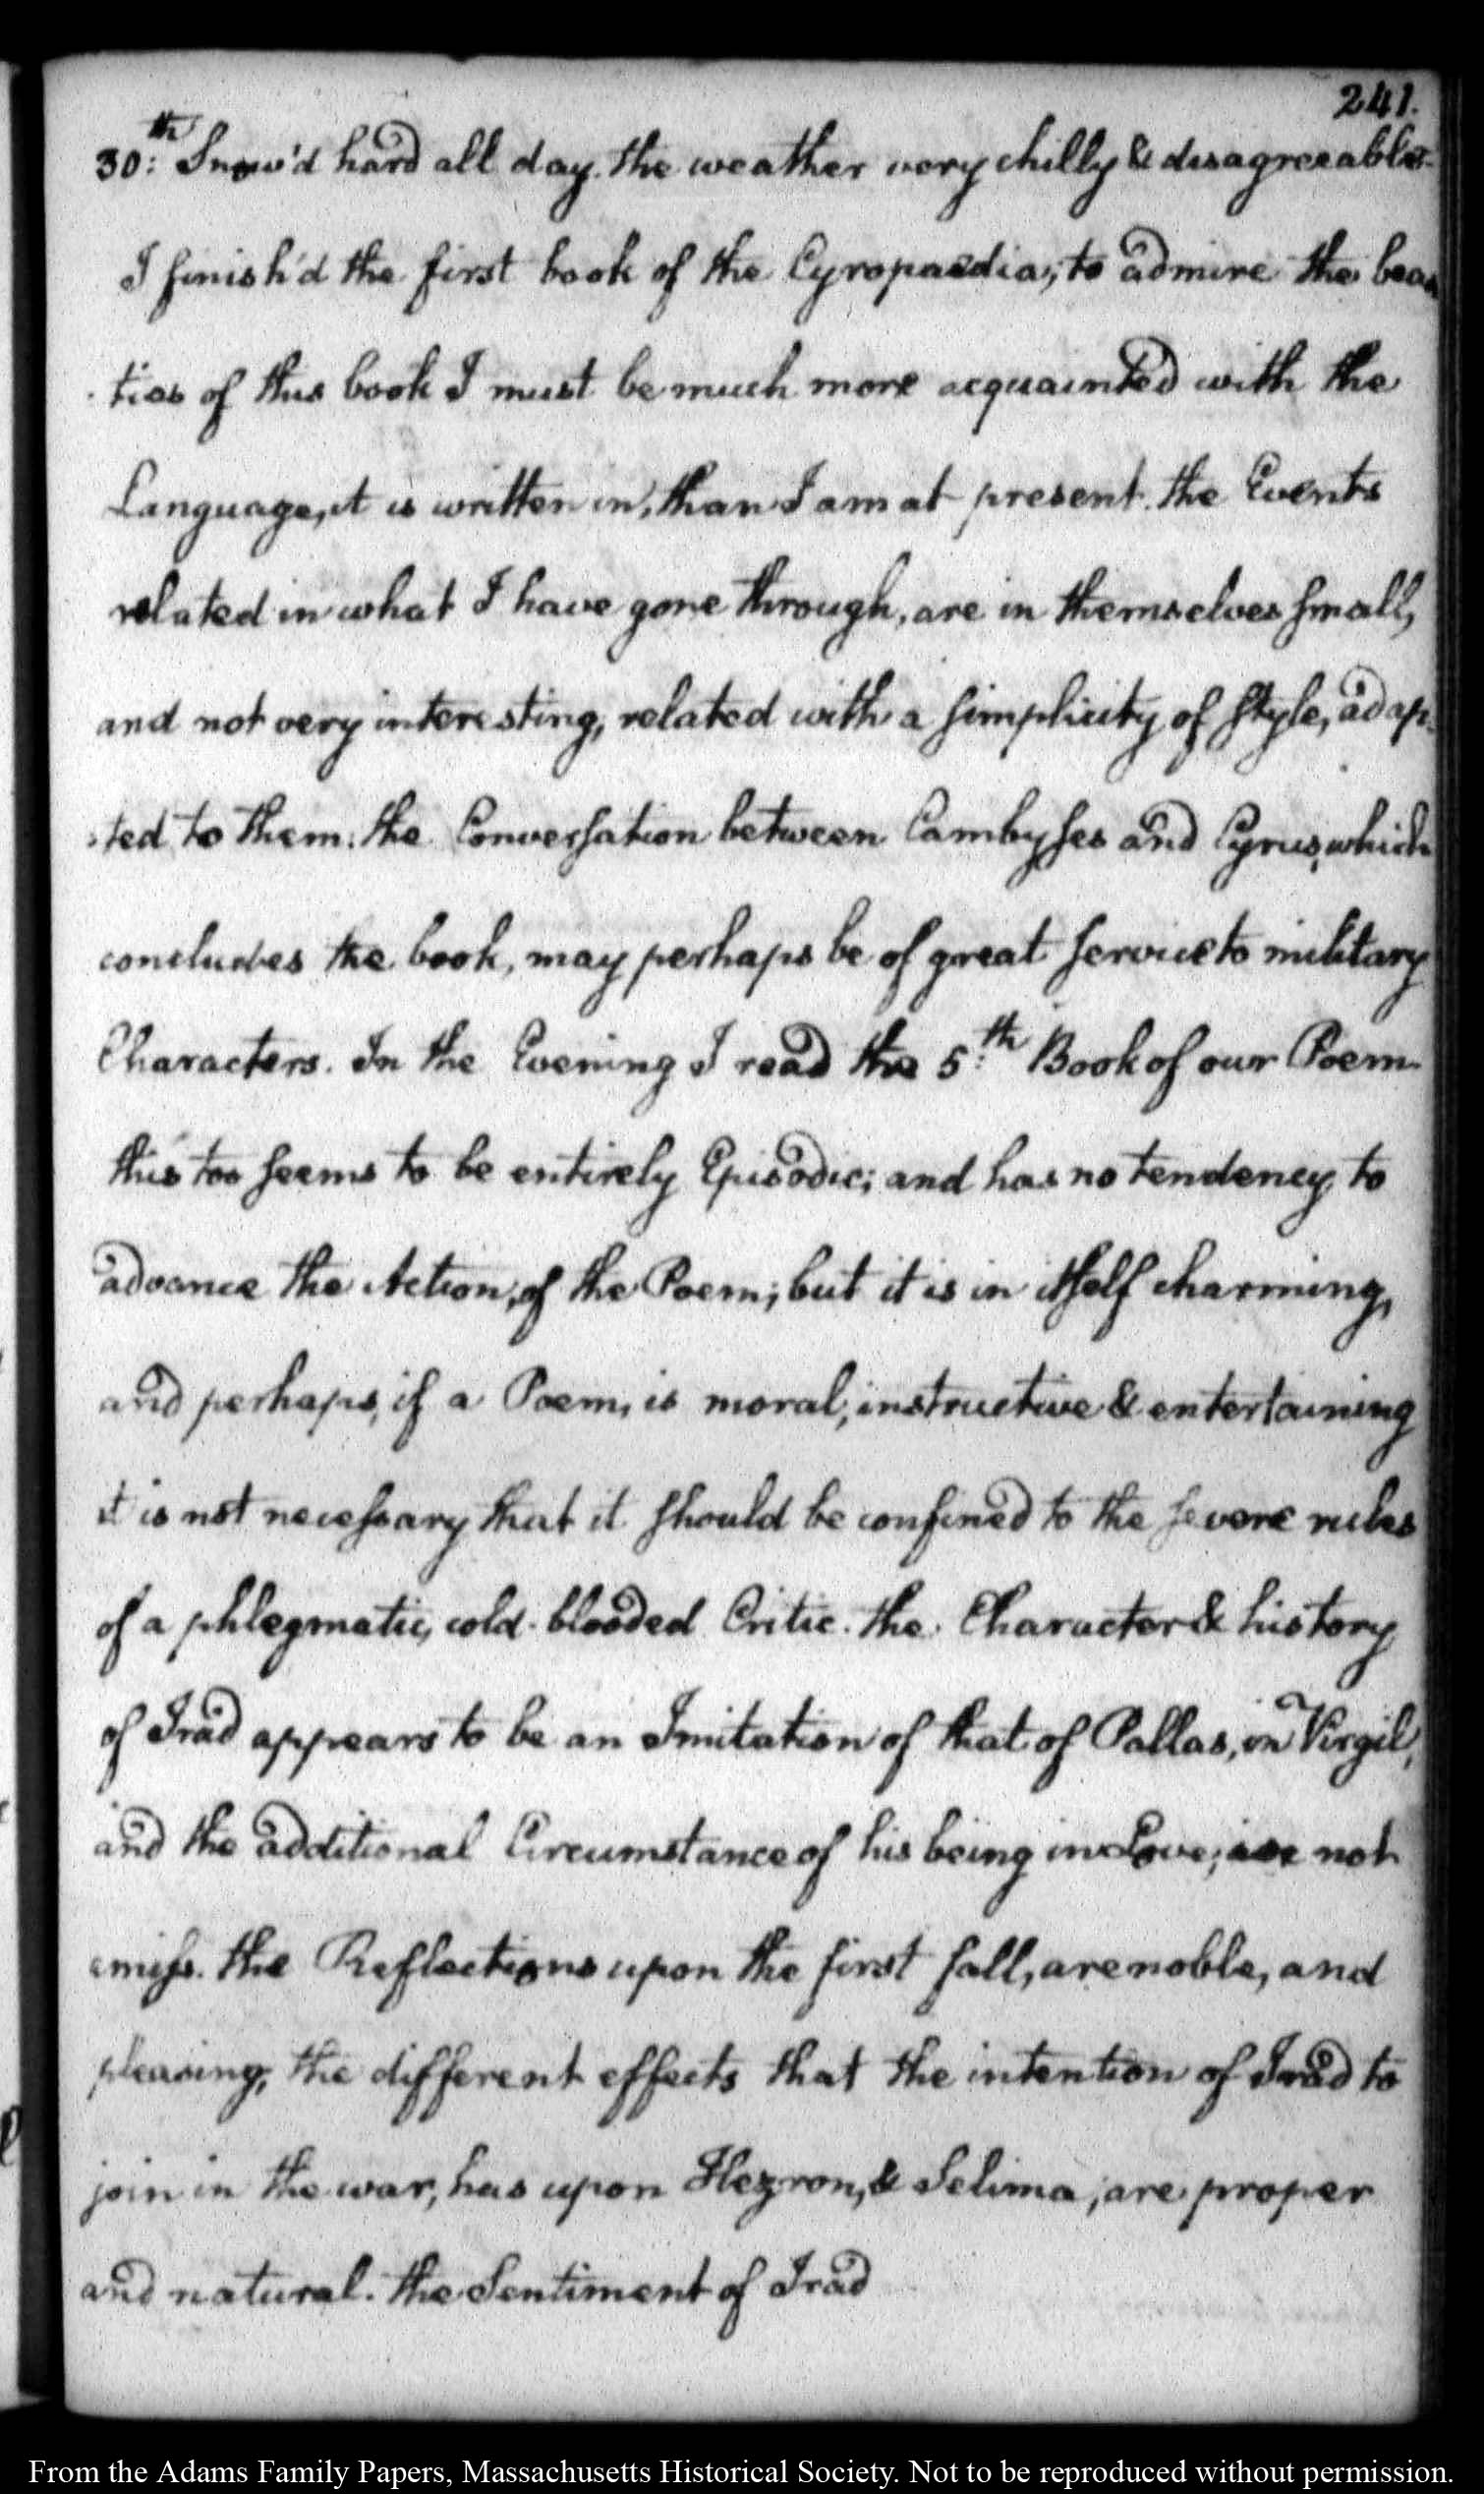 241.
30:th Snow'd hard all day. the weather very chilly & disagreeable.
I finish'd the first book of the Cyropaedia; to admire the beau
-ties of this book I must be much more acquainted with the
Language, it is written in, than I am at present. the Events
related in what I have gone through, are in themselves small,
and not very interesting, related with a simplicity of style, adap-
-ted to them. the Conversation between Cambyses and Cyrus, which
concludes the book, may perhaps be of great service to military
Characters. In the Evening I read the 5:th Book of our Poem.
this too seems to be entirely Episodic; and has no tendency to
advance the Action, of the Poem; but it is in itself charming,
and perhaps, if a Poem, is moral, instructive & entertaining
it is not necessary that it should be confined to the severe rules
of a phlegmatic, cold-blooded Critic. the Character & history
of Irad appears to be an Imitation of that of Pallas, in Virgil,
and the additional Circumstance of his being in Love; are not
amiss. the Reflections upon the first fall, are noble, and
pleasing, the different effects that the intention of Irad to
join in the war, has upon Hezron, & Selima, are proper
and natural. the Sentiment of Irad
From the Adams Family Papers, Massachusetts Historical Society. Not to be reproduced without permission.